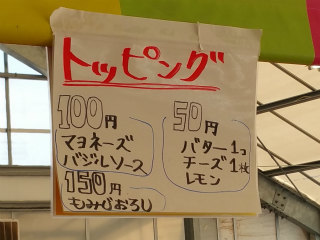 トッピング
100円
マヨネーズ
バジルソース
150円
もみじおろし
50円
バター1コ
チーズ1枚
レモン